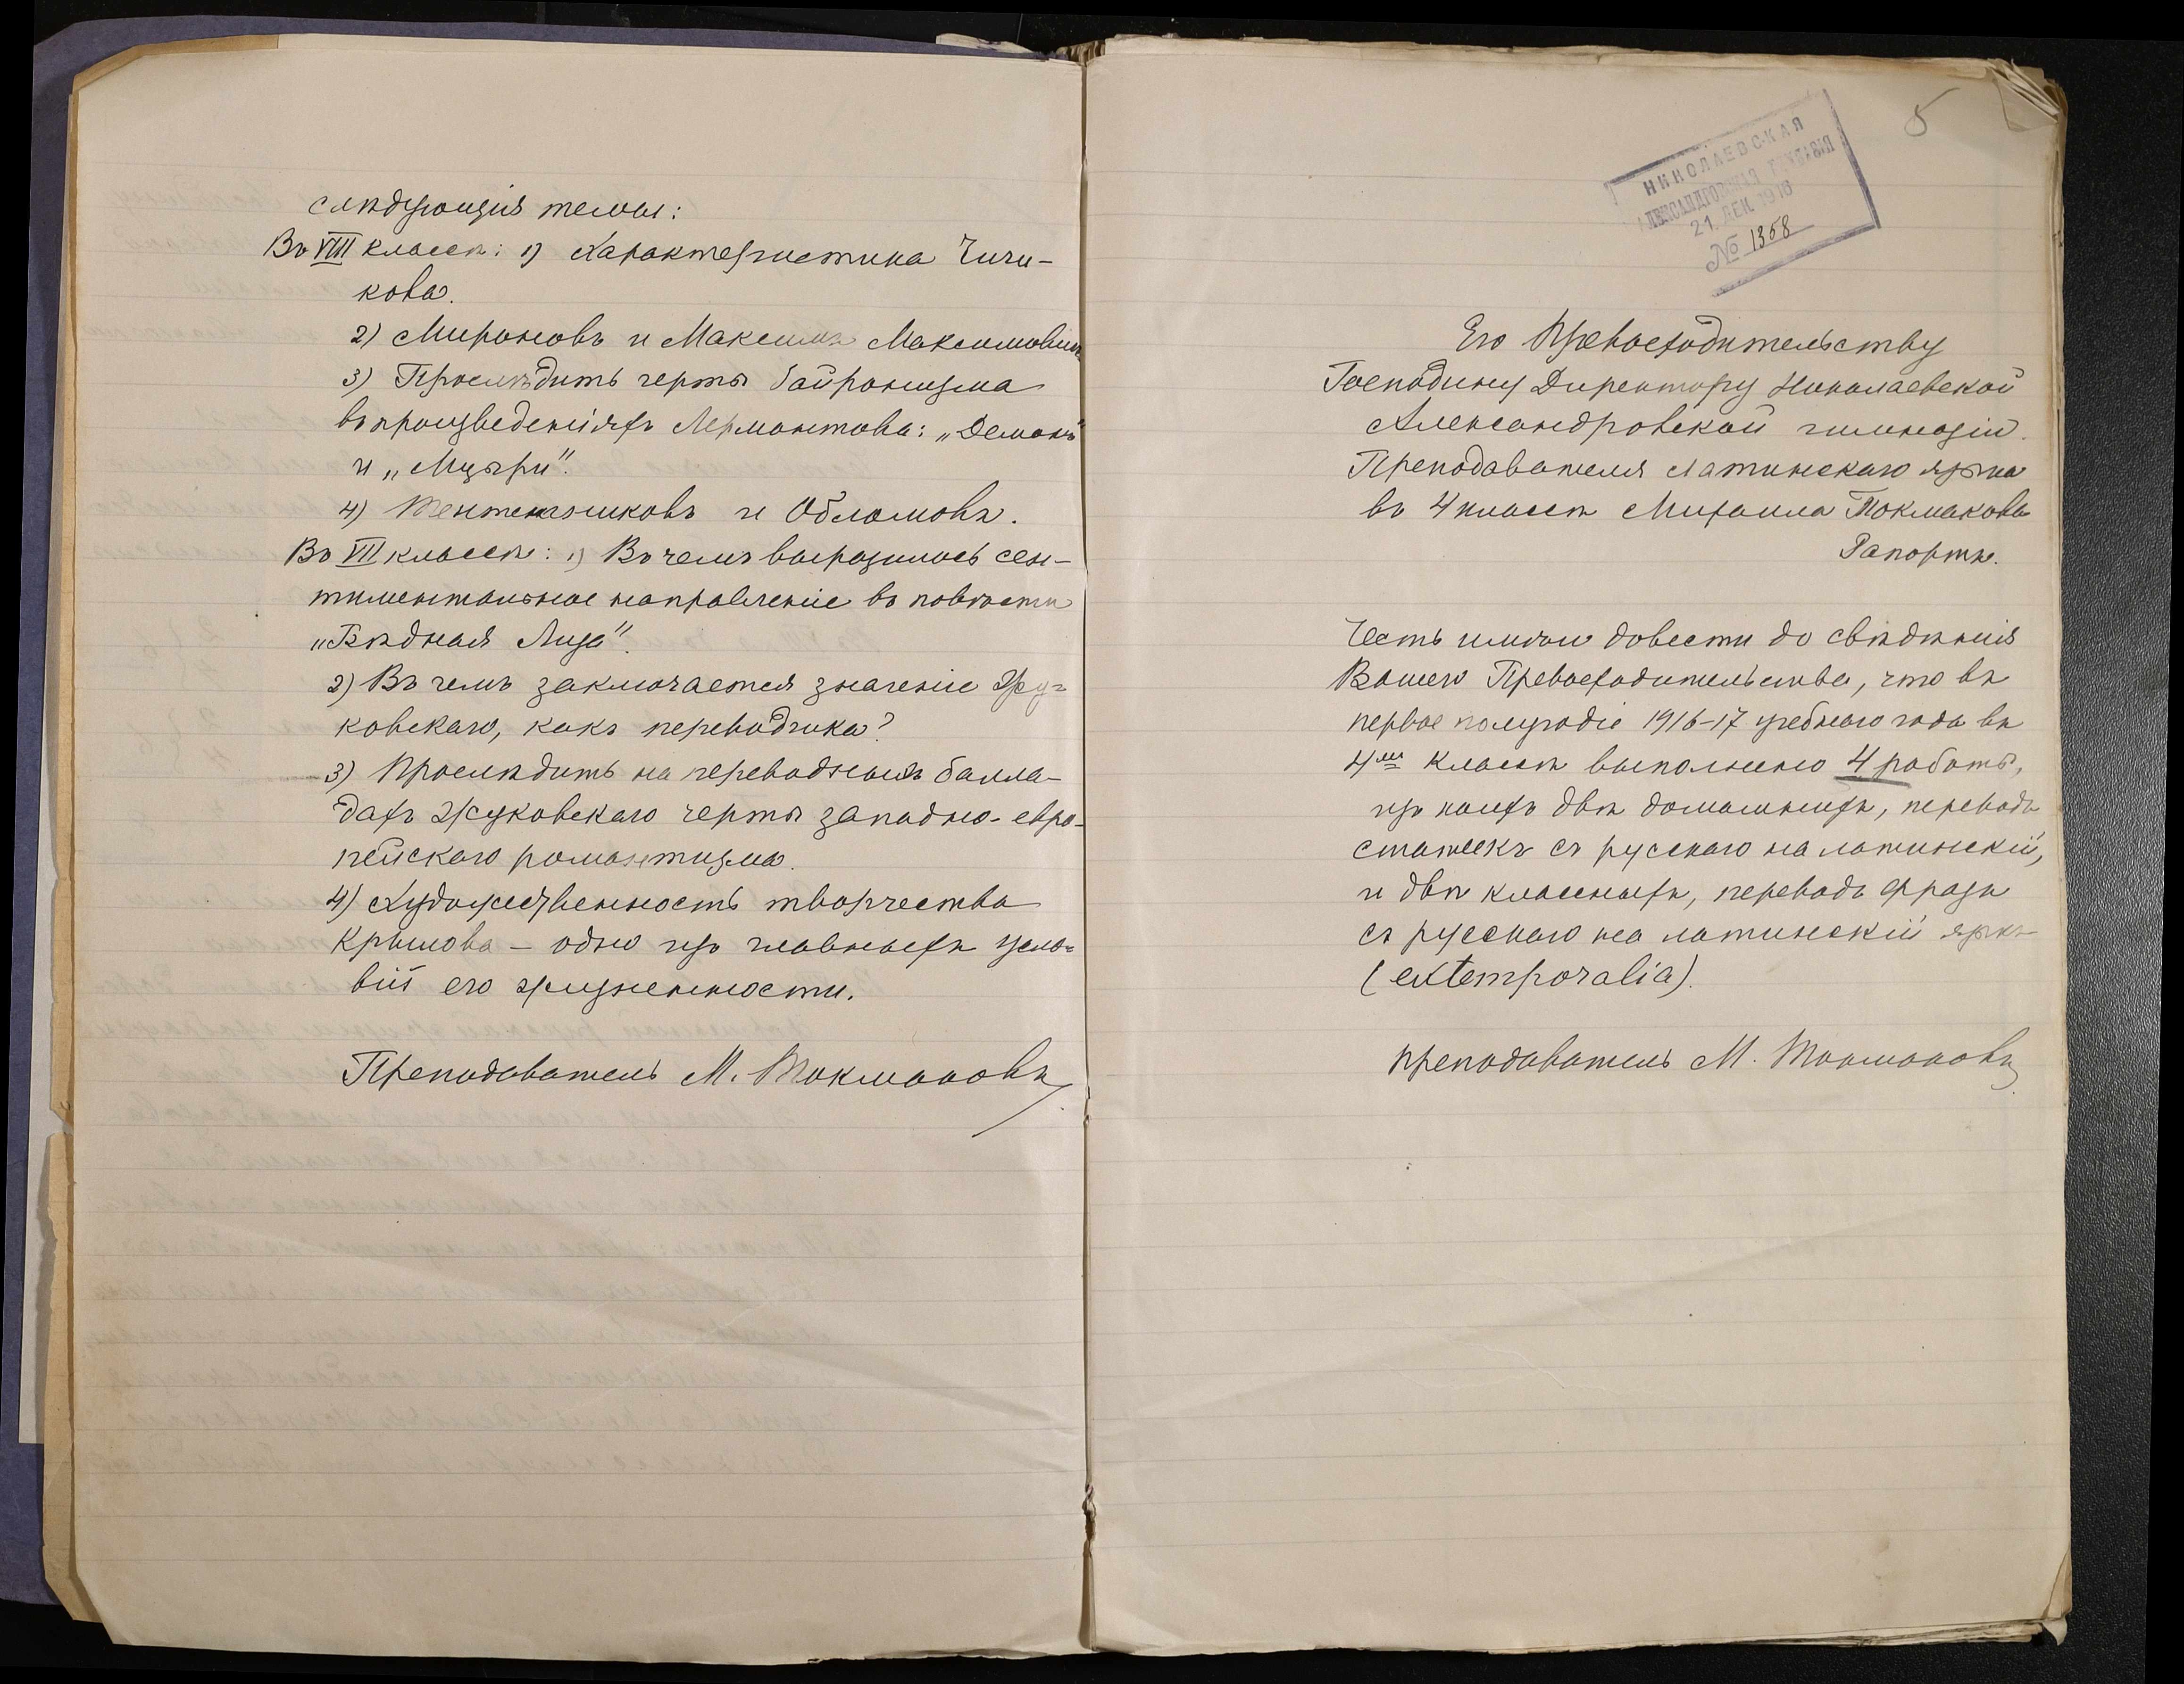 слѣдующія темы:
Въ VIII классѣ: 1) Характеристика Чичи-
кова.
2) Мироновъ и Максимъ Максимовичъ
3) Прослѣдить черты байронизма
въ произведеніяхъ Лермонтова: „Демонъ"
и „Мцыри".
4) Тентетниковъ и Обломовъ.
Въ VII классѣ: 1) Въ чемъ выразилось сен-
тиментальное направленіе въ повѣсти
„Бѣдная Лиза".
2) Въ чемъ заключается значеніе Жу-
ковскаго, какъ переводчика?
3) Прослѣдить на переводныхъ балла-
дахъ Жуковскаго черты западно-евро-
пейскаго романтизма.
4) Художественность творчества
Крылова – одно изъ главныхъ усло-
вій его жизненности.
Преподаватель М. Токмаковъ
5
НИКОЛАЕВСКАЯ
АЛЕКСАНДРОВСКАЯ ГИМНАЗІЯ
21. ДЕК. 1916
№ 1358
Его Превосходительству
Господину Директору Николаевской
Александровской гимназіи.
Преподавателя латинскаго языка
въ 4 классѣ Михаила Токмакова
Рапортъ.
Честь имѣю довести до свѣдѣнія
Вашего Превосходительства, что въ
первое полугодіе 1916-17 учебнаго года въ
4мъ классѣ выполнено 4 работы,
изъ коихъ двѣ домашнихъ, переводъ
статеекъ съ русскаго на латинскій,
и двѣ классныхъ, переводъ фразъ
съ русскаго на латинскій языкъ
(extemporalia).
Преподаватель М. Токмаковъ